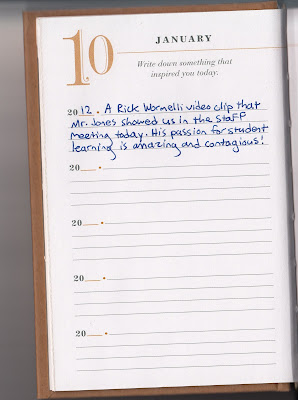 10
JANUARY
Write down something that
inspired you today.
2012. A Rick Wormelli video clip that
Mr. Jones showed us in the staff
meeting today. His passion for student
learning is amazing and contagious!
20
20
20
20